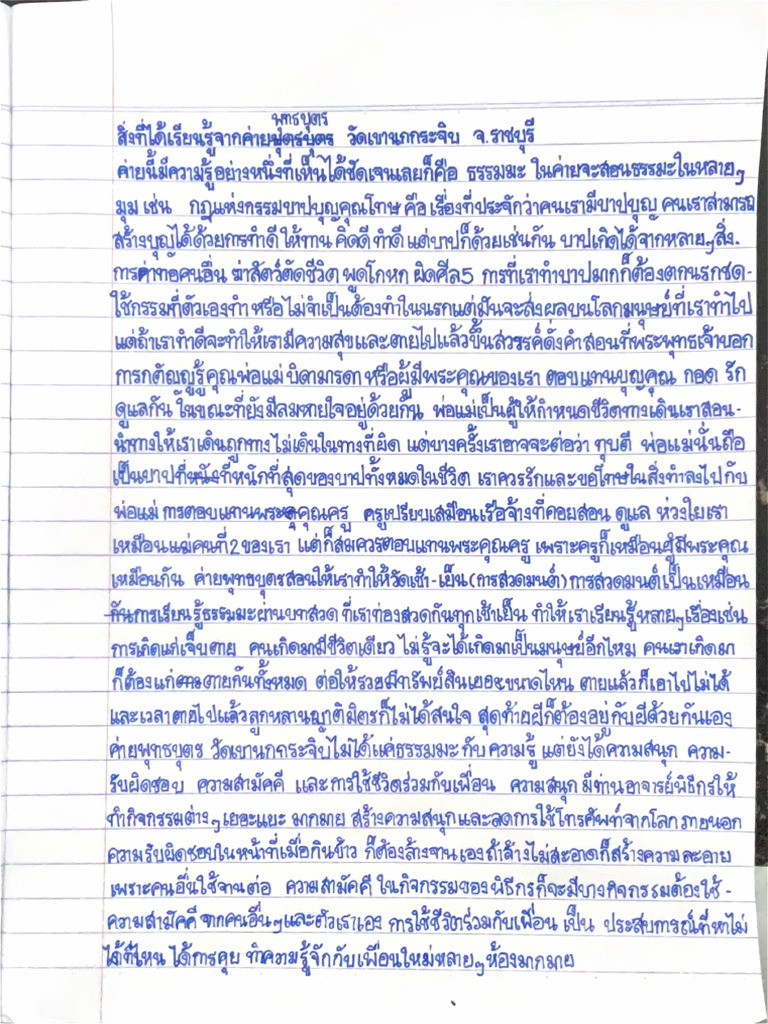 พุทธบุตร
สิ่งที่ได้เรียนรู้จากค่าย วัดเขานกกระจิบ จ.ราชบุรี
ค่ายนี้มีความรู้อย่างหนึ่งที่เห็นได้ชัดเจนเลยก็คือ ธรรมมะ ในค่ายจะสอนธรรมะในหลายๆ
มุม เช่น กฎแห่งกรรมบาปบุญคุณโทษ คือเรื่องที่ประจักว่าคนเรามีบาปบุญ คนเราสามารถ
สร้างบุญได้ด้วยการทำดี ให้ทาน คิดดี ทำดี แต่บาปก็ด้วยเช่นกัน บาปเกิดได้จากหลายๆสิ่ง.
การด่าทอคนอื่น ฆ่าสัตว์ตัดชีวิต พูดโกหก ผิดศีล5 การที่เราทำบาปมากก็ต้องตกนรกชด-
ใช้กรรมที่ตัวเองทำ หรือไม่จำเป็นต้องทำในนรกแต่มันจะส่งผลบนโลกมนุษย์ที่เราทำไป
แต่ถ้าเราทำดีจะทำให้เรามีความสุขและตายไปแล้วขึ้นสวรรค์ดั่งคำสอนที่พระพุทธเจ้าบอก
การกตัญญูรู้คุณพ่อแม่ บิดามารดา หรือผู้มีพระคุณของเรา ตอบแทนบุญคุณ กอด รัก
ดูแลกัน ในขณะที่ยังมีลมหายใจอยู่ด้วยกัน พ่อแม่เป็นผู้ให้กำหนดชีวิตทางเดินเราสอน-
นำทางให้เราเดินถูกทางไม่เดินในทางที่ผิด แต่บางครั้งเราอาจจะต่อว่า ทุบตี พ่อแม่นั่นถือ
เป็นบาปที่หนักที่สุดของบาปทั้งหมดในชีวิต เราควรรักและขอโทษในสิ่งทำลงไปกับ
พ่อแม่ การตอบแทนพระคุณครู ครูเปรียบเสมือนเรือจ้างที่คอยสอน ดูแล ห่วงใยเรา
เหมือนแม่คนที่2ของเรา แต่ก็สมควรตอบแทนพระคุณครู เพราะครูก็เหมือนผู้มีพระคุณ
เหมือนกัน ค่ายพุทธบุตรสอนให้เราทำให้วัดเช้า-เย็น(การสวดมนต์) การสวดมนต์เป็นเหมือน
กันการเรียนรู้ธรรมมะผ่านบทสวด ที่เราท่องสวดกันทุกเช้าเย็น ทำให้เราเรียนรู้หลายๆเรื่องเช่น
การเกิดแก่เจ็บตาย คนเกิดมามีชีวิตเดียว ไม่รู้จะได้เกิดมาเป็นมนุษย์อีกไหม คนเราเกิดมา
ก็ต้องแก่ตายกันทั้งหมด ต่อให้รวยมีทรัพย์สินเยอะขนาดไหน ตายแล้วก็เอาไปไม่ได้
และเวลาตายไปแล้วลูกหลานญาติมิตรก็ไม่ได้สนใจ สุดท้ายผีก็ต้องอยู่กับผีด้วยกันเอง
ค่ายพุทธบุตร วัดเขานกกระจิบไม่ได้แค่ธรรมมะกับความรู้ แต่ยังได้ความสนุก ความ-
รับผิดชอบ ความสามัคคี และการใช้ชีวิตร่วมกับเพื่อน ความสนุก มีท่านอาจารย์พิธีกรให้
ทำกิจกรรมต่างๆเยอะแยะ มากมาย สร้างความสนุกและลดการใช้โทรศัพท์จากโลกภายนอก
ความรับผิดชอบในหน้าที่เมื่อกินข้าว ก็ต้องล้างจานเองถ้าล้างไม่สะอาดก็สร้างความละอาย
เพราะคนอื่นใช้จานต่อ ความสามัคคี ในกิจกรรมของพิธีกรก็จะมีบางกิจกรรมต้องใช้-
ความสามัคคีจากคนอื่นๆและตัวเราเอง การใช้ชีวิตร่วมกับเพื่อน เป็น ประสบการณ์ที่หาไม่
ได้ที่ไหน ได้การคุย ทำความรู้จักกับเพื่อนใหม่หลายๆห้องมากมาย